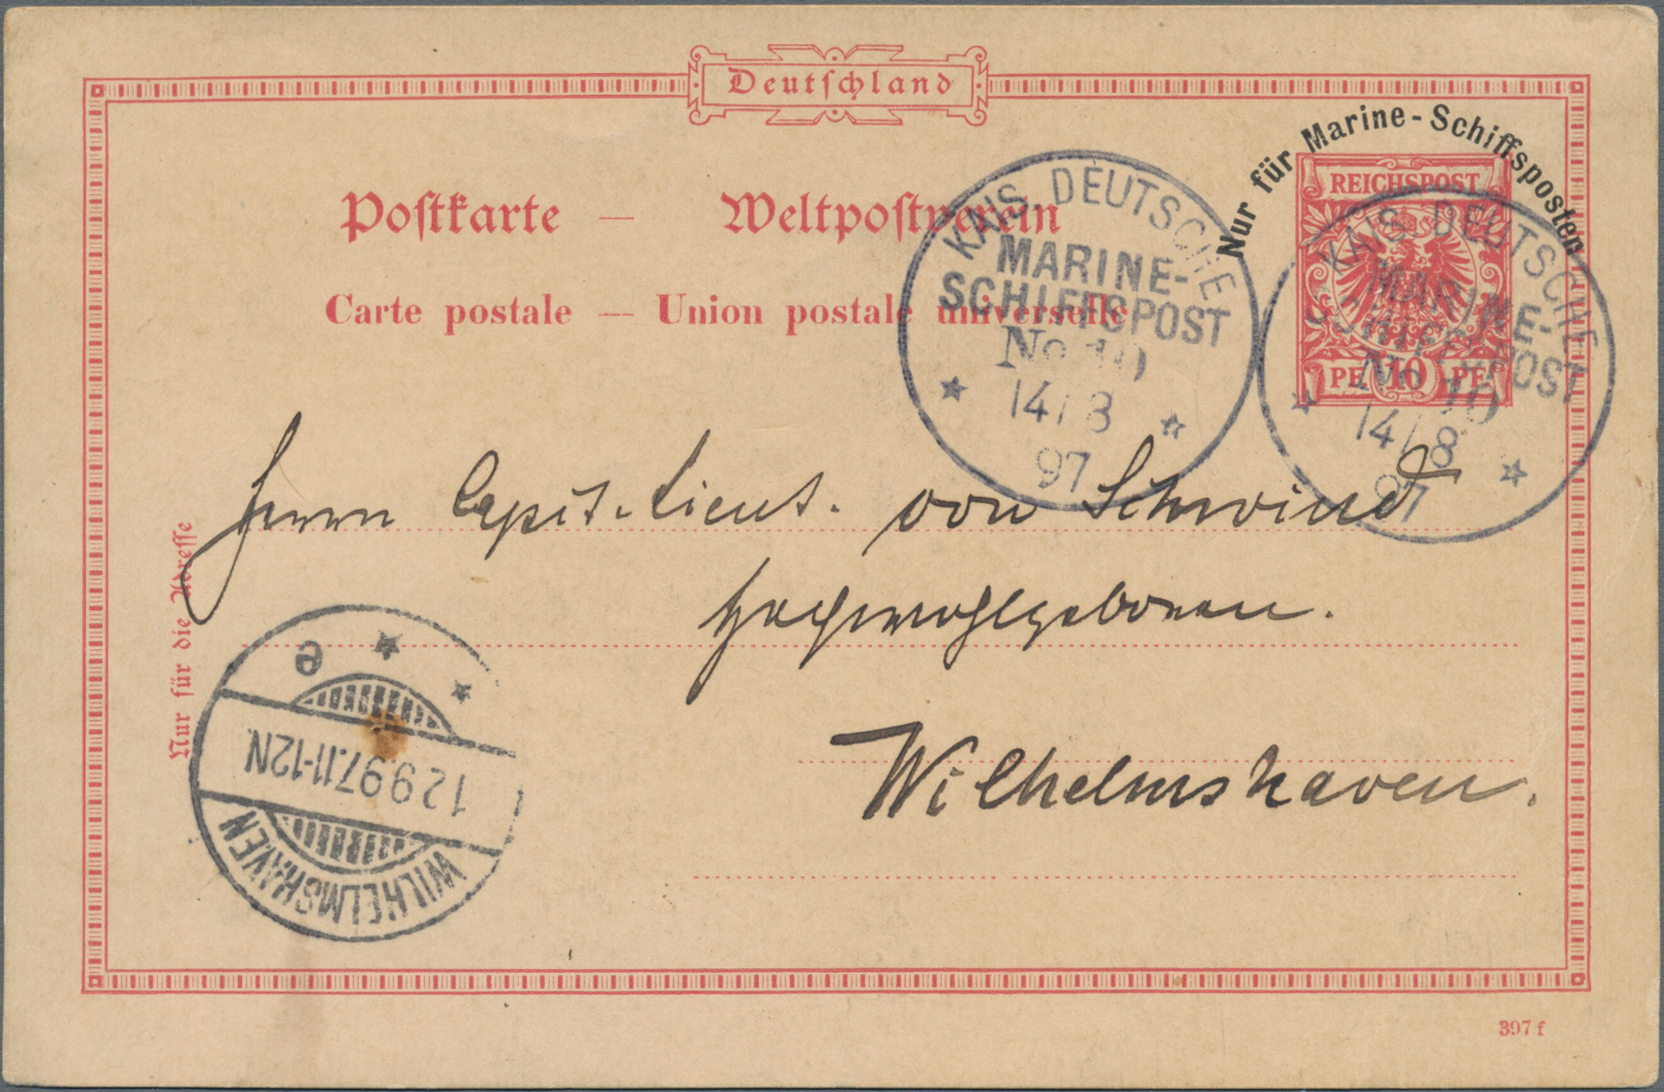 Deutschland
Nur für Marine-Schiffsposten
REICHSPOST
10
PF PF
Postkarte — Weltpostverein
Carte postale — Union postale universelle
KAIS. DEUTSCHE
MARINE-
SCHIFFSPOST
No 10
14/8
97
KAIS. DEUTSCHE
MARINE-
SCHIFFSPOST
No 10
14/8
97
Herrn Capit. Lieut. von Schwind
Hochwohlgeboren.
Wilhelmshaven.
Nur für die Adresse
WILHELMSHAVEN
12 9 97. 11-12N.
e
397 f